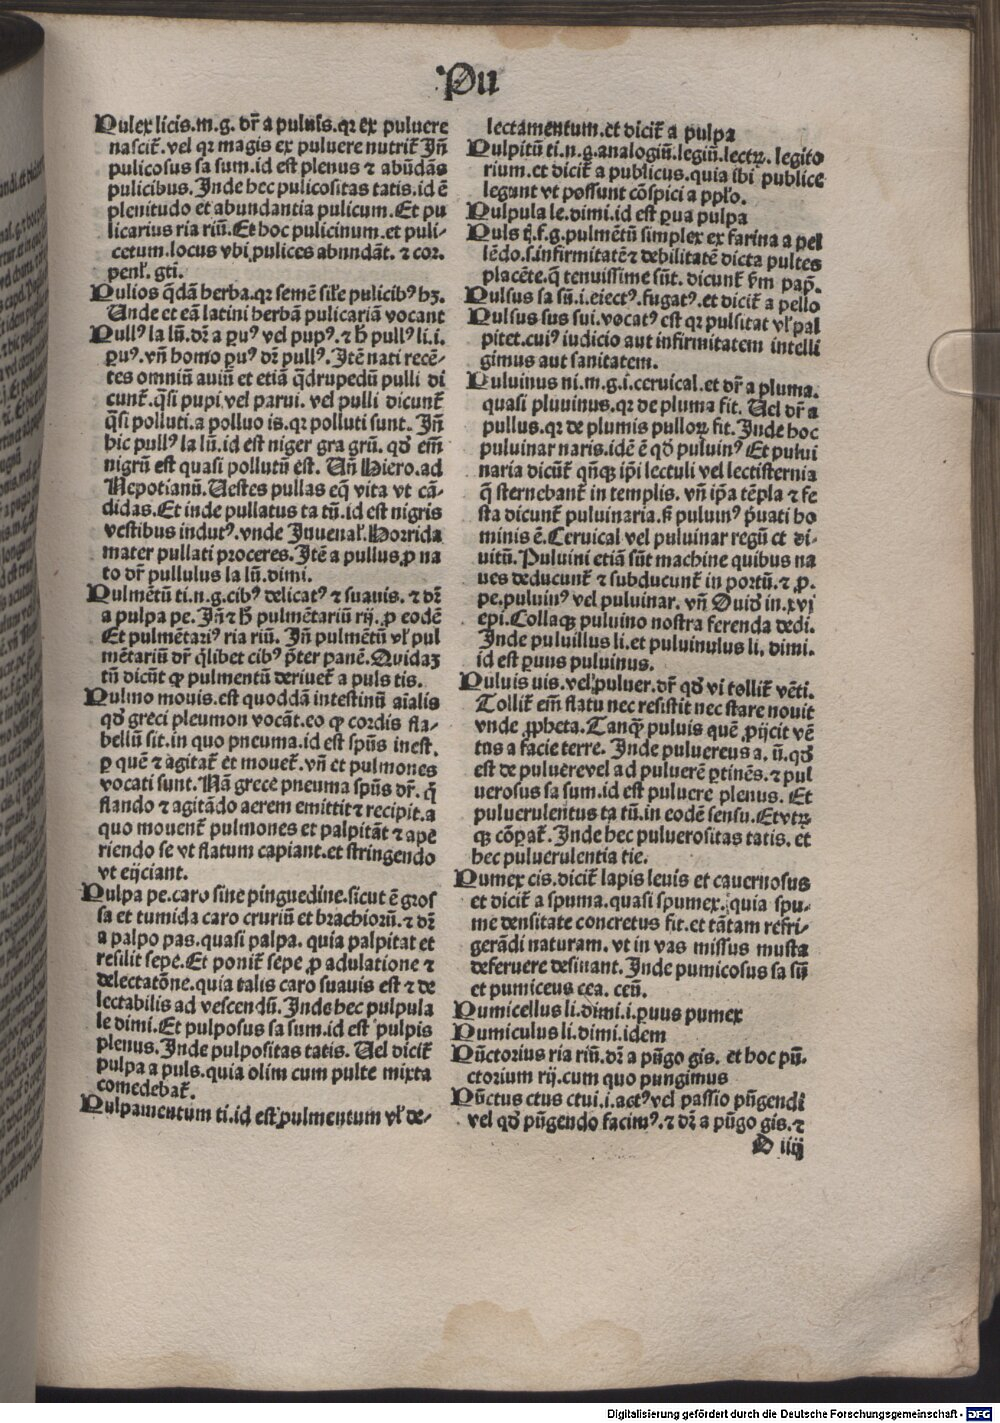 Pu
Pulex licis.m.g. dr̄ a puluis.qꝛ ex puluere
nascit᷑.vel qꝛ magis ex puluere nutrit᷑ Jn̄
pulicosus sa sum.id est plenus ⁊ abūdās
pulicibus. Jnde hec pulicositas tatis.id ē
plenitudo et abundantia pulicum. Et pu
licarius ria riū. Et hoc pulicinum.et puli-
cetum.locus vbi pulices abundāt. ⁊ cor.
penl̓. gti.
Pulios q̄dā herba.qꝛ semē sil̓e pulicibꝰ hꝫ.
Unde et eā latini herbā pulicariā vocant
Pullꝰ la lū. dꝛ̄ a ꝑuꝰ vel pupꝰ. ⁊ h̄ pullꝰ li.i.
ꝑuꝰ. vn̄ homo ꝑuꝰ dꝛ̄ pullꝰ. Jtē nati recē-
tes omniū auiū et etiā q̄drupedū pulli di
cunt᷑. q̄si pupi vel parui. vel pulli dicunt᷑
q̄si polluti.a polluo is.qꝛ polluti sunt. Jn̄
hic pullꝰ la lū.id est niger gra grū. qd̓ em̄
nigrū est quasi pollutū est. Un̄ Hiero.ad
Nepotianū. Uestes pullas eq̄ vita vt cā-
didas. Et inde pullatus ta tū.id est nigris
vestibus indutꝰ. vnde Juuenal̓. Horrida
mater pullati proceres. Jtē a pullus.ꝓ na
to dr̄ pullulus la lū.dimi.
Pulmētū ti.n.g.cibꝰ delicatꝰ ⁊ suauis. ⁊ dꝛ̄
a pulpa pe. Jn̄ ⁊ h̄ pulmētariū rij. ꝓ eodē
Et pulmētariꝰ ria riū. Jn̄ pulmētū vl̓ pul
mētariū dr̄ q̄libet cibꝰ p̄ter panē. Quidaꝫ
tn̄ dicūt ꝙ pulmentū deriuet᷑ a puls tis.
Pulmo mouis.est quoddā intestinū aīalis
qd̓ greci pleumon vocāt.eo ꝙ cordis fla-
bellū sit.in quo pneuma.id est spūs inest.
ꝑ quē ⁊ agitat᷑ et mouet᷑. vn̄ et pulmones
vocati sunt. Nā grece pneuma spūs dr̄. q̄
flando ⁊ agitādo aerem emittit ⁊ recipit.a
quo mouent᷑ pulmones et palpitāt ⁊ ape
riendo se vt flatum capiant.et stringendo
vt eijciant.
Pulpa pe.caro sine pinguedine.sicut ē gros
sa et tumida caro cruriū et brachiorū. ⁊ dꝛ̄
a palpo pas.quasi palpa. quia palpitat et
resilit sepe. Et ponit᷑ sepe ꝓ adulatione ⁊
delectatōne.quia talis caro suauis est ⁊ de
lectabilis ad vescendū. Jnde hec pulpula
le dimi. Et pulposus sa sum.id est pulpis
plenus. Jnde pulpositas tatis. Uel dicit᷑
pulpa a puls.quia olim cum pulte mixta
comedebat᷑.
Pulpamentum ti.id est pulmentum vl̓ de-
lectamentum.et dicit᷑ a pulpa
Pulpitū ti.n.g.analogiū.legiū.lectꝝ. legito
rium.et dicit᷑ a publicus.quia ibi publice
legunt vt possunt cōspici a pp̄lo.
Pulpula le.dimi.id est ꝑua pulpa
Puls t̄.f.g.pulmētū simplex ex farina a pel
lēdo.s.infirmitatē ⁊ debilitatē dicta pultes
placēte.q̄ tenuissime sūt. dicunt᷑ ẜm pap̄.
Pulsus sa sū.i.eiectꝰ.fugatꝰ.et dicit᷑ a pello
Pulsus sus sui.vocatꝰ est qꝛ pulsitat vl̓ pal
pitet.cuiꝰ iudicio aut infirmitatem intelli
gimus aut sanitatem.
Puluinus ni.m.g.i.ceruical.et dr̄ a pluma.
quasi pluuinus.qꝛ de pluma fit. Uel dr̄ a
pullus.qꝛ de plumis pulloꝝ fit. Jnde hoc
puluinar naris.idē ē qd̓ puluinꝰ Et pului
naria dicūt᷑ qn̄qꝫ ip̄i lectuli vel lectisternia
q̄ sternebant᷑ in templis. vn̄ ip̄a tēpla ⁊ fe
sta dicunt᷑ puluinaria.ẜ puluinꝰ p̄uati ho
minis ē. Ceruical vel puluinar regū et di-
uitū. Puluini etiā sūt machine quibus na
ues deducunt᷑ ⁊ subducunt᷑ in portū. ⁊ ꝓ.
pe.puluinꝰ vel puluinar. vn̄ Ouid̓ in.xvj
epi. Collaqꝫ puluino nostra ferenda dedi.
Jnde puluillus li.et puluinulus li. dimi.
id est ꝑuus puluinus.
Puluis uis. vel puluer.dr̄ qd̓ vi tollit᷑ vēti.
Tollit᷑ em̄ flatu nec resistit nec stare nouit
vnde ꝓpheta. Tanqꝫ puluis quē ꝓijcit vē
tus a facie terre. Jnde puluereus a. ū.qd̓
est de puluere vel ad puluerē ꝑtinēs. ⁊ pul
uerosus sa sum.id est puluere plenus. Et
puluerulentus ta tū.in eodē sensu. Et vtrꝝ
qꝫ cōꝑat᷑. Jnde hec puluerositas tatis. et
hec puluerulentia tie.
Pumex cis.dicit᷑ lapis leuis et cauernosus
et dicit᷑ a spuma.quasi spumex. quia spu-
me densitate concretus fit.et tātam refri-
gerādi naturam. vt in vas missus musta
deferuere desinant. Jnde pumicosus sa sū
et pumiceus cea. ceū.
Pumicellus li.dimi.i.ꝑuus pumex
Pumiculus li.dimi.idem
Pūctorius ria riū.dꝛ̄ a pūgo gis. et hoc pū-
ctorium rij.cum quo pungimus
Pūctus ctus ctui.i.actꝰ vel passio pūgendi
vel qd̓ pūgendo facimꝰ. ⁊ dꝛ̄ a pūgo gis. ⁊
D iiij
Digitalisierung gefördert durch die Deutsche Forschungsgemeinschaft - DFG